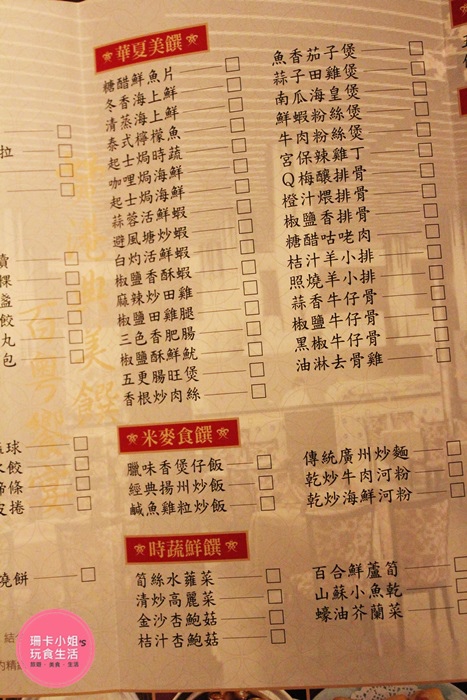 華夏美饌
糖醋鮮魚片
冬香海上鮮
清蒸海上鮮
泰式檸檬魚
起士焗時蔬
咖哩焗海鮮
起士焗海鮮
蒜蓉活鮮蝦
避風塘炒蝦
白灼活鮮蝦
椒鹽香酥蝦
麻辣炒田雞
椒鹽田雞腿
三色香肥腸
椒鹽酥鮮魷
五更腸旺煲
香根炒肉絲
魚香茄子煲
蒜子田雞煲
南瓜海皇煲
鮮蝦粉絲煲
牛肉粉絲煲
宮保辣雞丁
Q梅釀排骨
橙汁煨排骨
椒鹽香排骨
糖醋咕咾肉
桔汁羊小排
照燒羊小排
蒜香牛仔骨
椒鹽牛仔骨
黑椒牛仔骨
油淋去骨雞
米麥食饌
臘味香煲仔飯
經典揚州炒飯
鹹魚雞粒炒飯
傳統廣州炒麵
乾炒牛肉河粉
乾炒海鮮河粉
時蔬鮮饌
筍絲水蓮菜
清炒高麗菜
金沙杏鮑菇
桔汁杏鮑菇
百合鮮蘆筍
山蘇小魚乾
蠔油芥蘭菜
拉
粿
盞
餃
丸
包
球
水餃
條
皮捲
燒餅
珊卡小姐
玩食生活
旅遊・美食・生活